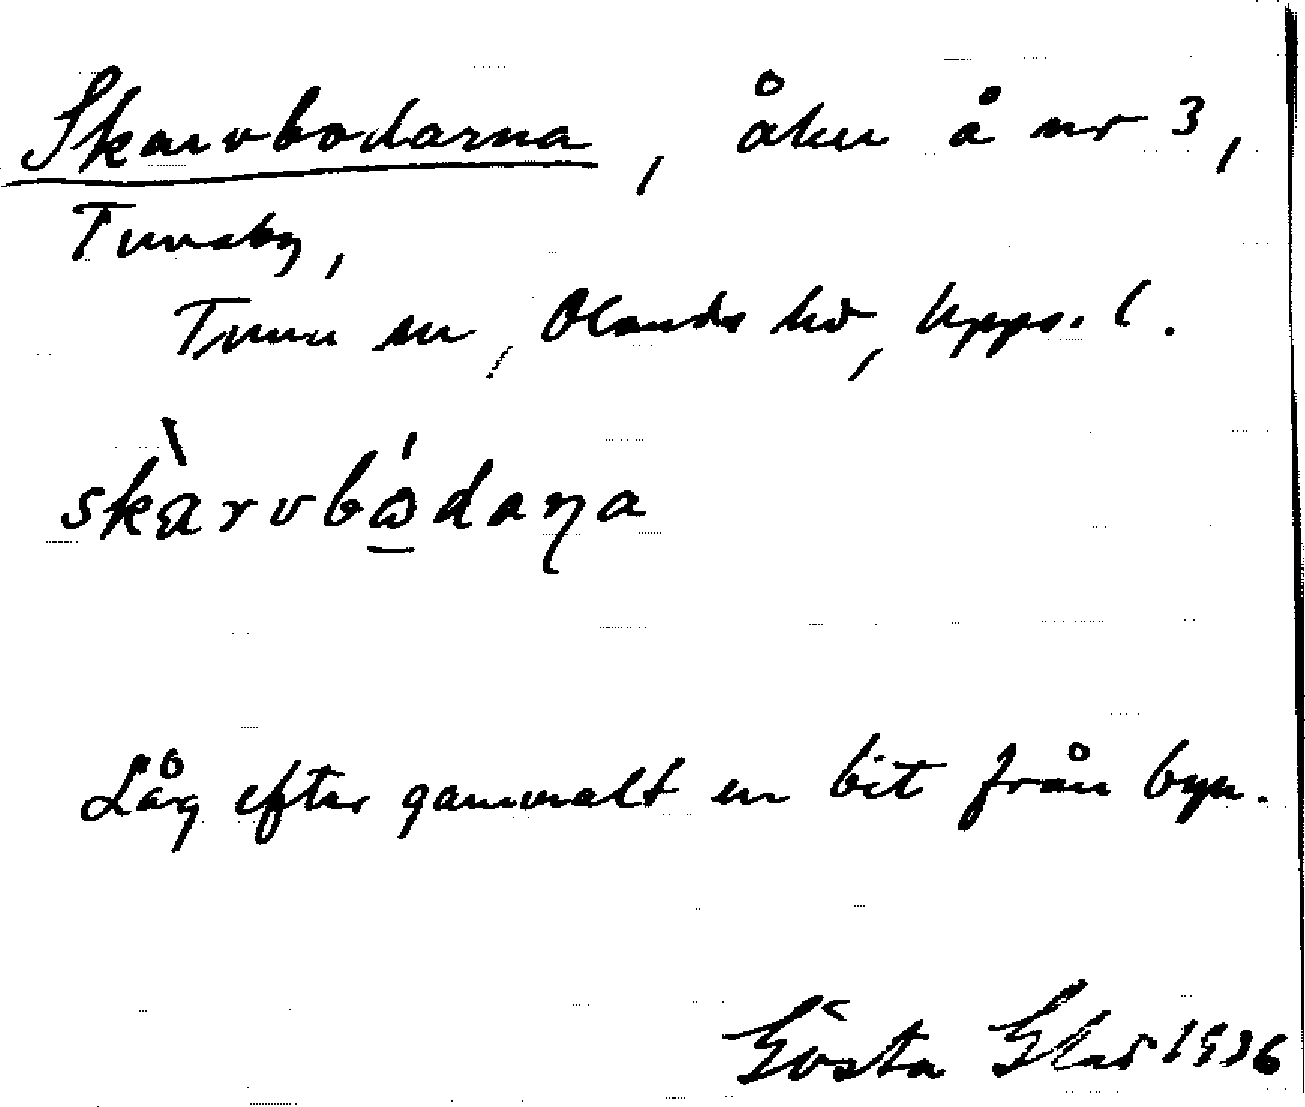 Skarvbodarna, åker å nr 3,
Tunaby,
Tuna sn, Olands hd, Upps. l.
skàrvbådaņa
Låg efter gammalt en bit från byn.
Gösta 1936